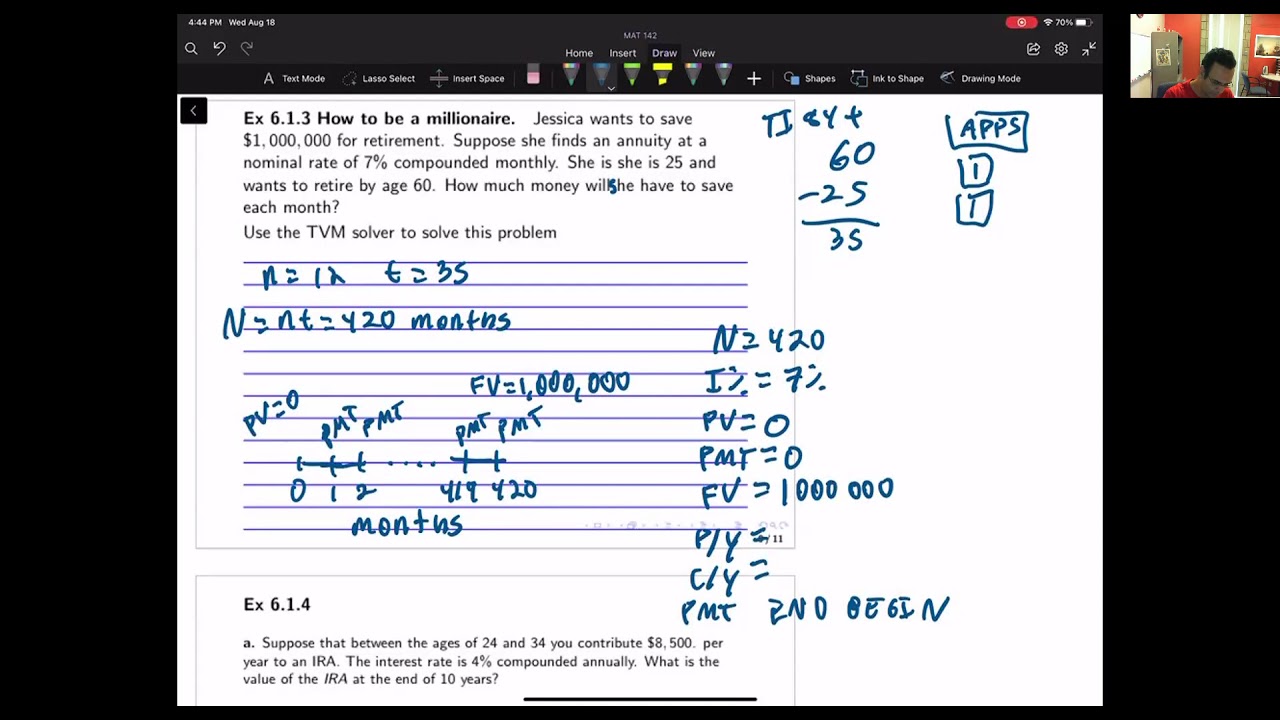 4:44 PM Wed Aug 18
70%
MAT 142
Home Insert Draw View
Text Mode Lasso Select Insert Space Shapes Ink to Shape Drawing Mode
Ex 6.1.3 How to be a millionaire. Jessica wants to save
$1,000,000 for retirement. Suppose she finds an annuity at a
nominal rate of 7% compounded monthly. She is she is 25 and
wants to retire by age 60. How much money will she have to save
each month?
Use the TVM solver to solve this problem
n = 12 t = 35
N = nt = 420 months
PV=0
FV=1,000,000
PMT PMT PMT PMT
0 1 2 ...... 419 420
months
TI 84+
60
-25
35
APPS
1
1
N = 420
I% = 7%
PV = 0
PMT = 0
FV = 1000 000
P/Y =
C/Y =
PMT END BEGIN
/11
Ex 6.1.4
a. Suppose that between the ages of 24 and 34 you contribute $8,500. per
year to an IRA. The interest rate is 4% compounded annually. What is the
value of the IRA at the end of 10 years?